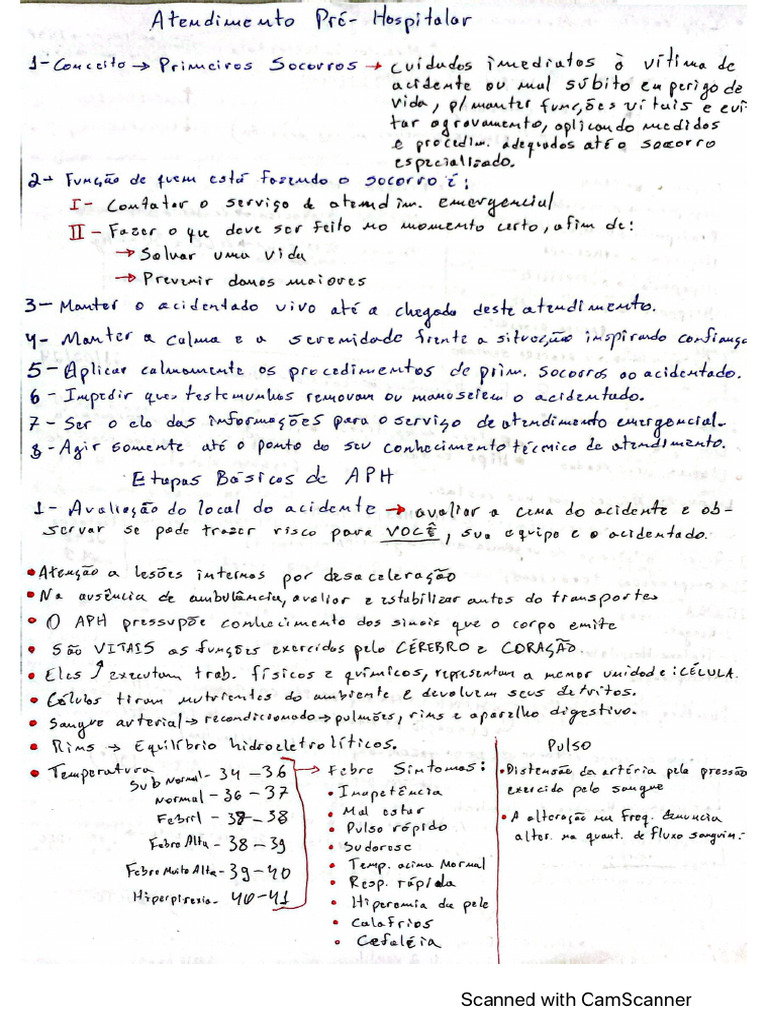 Atendimento Pré-Hospitalar
1-Conceito → Primeiros Socorros → cuidados imediatos à vítima de
acidente ou mal súbito em perigo de
vida, p/manter funções vitais e evi-
tar agravamento, aplicando medidas
e procedim. adequados até o socorro
especializado.
2- Função de quem está fazendo o socorro é:
I- Contatar o serviço de atendim. emergencial
II- Fazer o que deve ser feito no momento certo, afim de:
→ Salvar uma vida
→ Prevenir danos maiores
3- Manter o acidentado vivo até a chegada deste atendimento.
4- Manter a calma e a serenidade frente a situação inspirando confiança
5- Aplicar calmamente os procedimentos de prim. socorros ao acidentado.
6- Impedir que testemunhas removam ou manuseiem o acidentado.
7- Ser o elo das informações para o serviço de atendimento emergencial.
8- Agir somente até o ponto do seu conhecimento técnico de atendimento.
Etapas Básicas de APH
1- Avaliação do local do acidente → avaliar a cena do acidente e ob-
servar se pode trazer risco para VOCÊ, sua equipe e o acidentado.
• Atenção a lesões internas por desaceleração
• Na ausência de ambulância, avaliar e estabilizar antes do transportes
• O APH pressupõe conhecimento dos sinais que o corpo emite
• São VITAIS as funções exercidas pelo CÉREBRO e CORAÇÃO.
• Eles ↑ executam trab. físicos e químicos, representam a menor unidade: CÉLULA.
• Células tiram nutrientes do ambiente e devolvem seus detritos.
• Sangue arterial → recondicionado → pulmões, rins e aparelho digestivo.
• Rins → Equilíbrio hidroeletrolíticos.
• Temperatura
Sub Normal - 34 - 36
Normal - 36 - 37
Febril - 37 - 38
Febre Alta - 38 - 39
Febre Muito Alta - 39 - 40
Hiperpirexia - 40 - 41
→ Febre Sintomas:
• Inapetência
• Mal estar
• Pulso rápido
• Sudorese
• Temp. acima Normal
• Resp. rápida
• Hiperemia da pele
• Calafrios
• Cefaléia
Pulso
• Distensão da artéria pela pressão
exercida pelo sangue
• A alteração na Freq. denuncia
alter. na quant. de fluxo sanguin:
Scanned with CamScanner